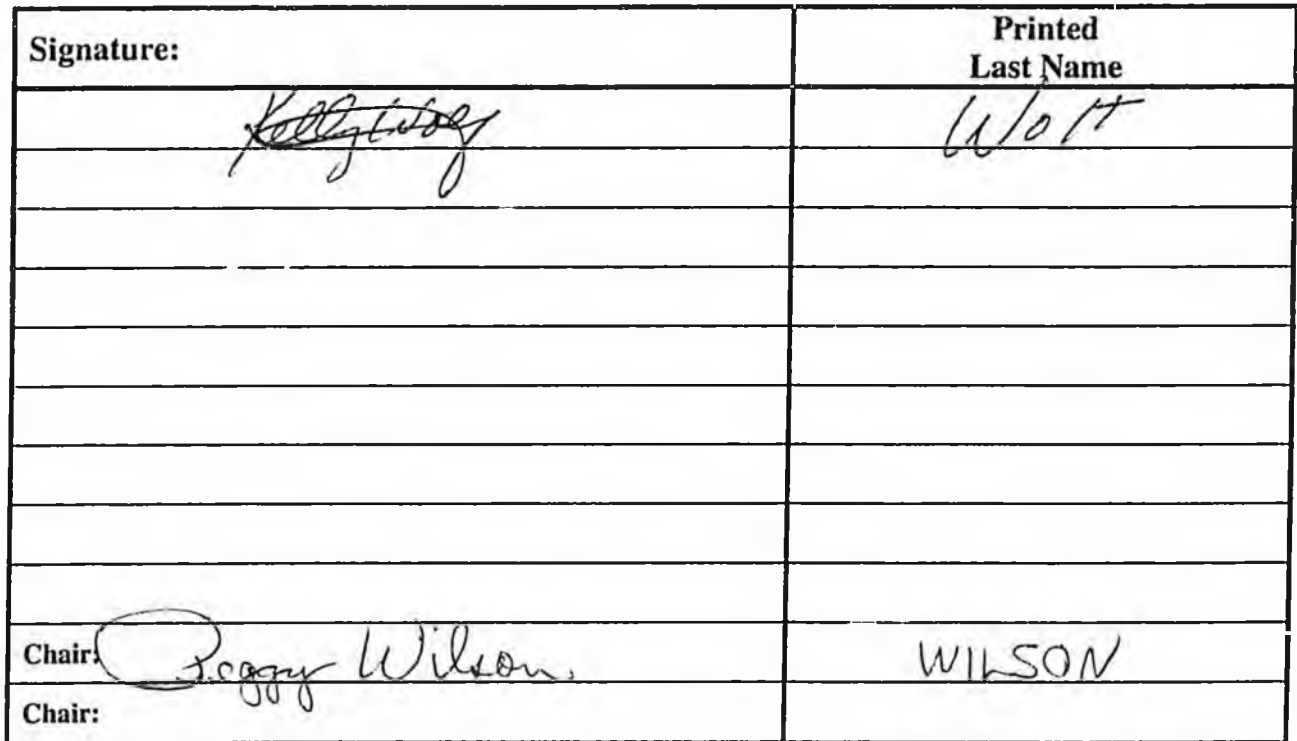 Signature:
Printed
Last Name
Kelly
Chair: Peggy Wilson.
WILSON
Chair: